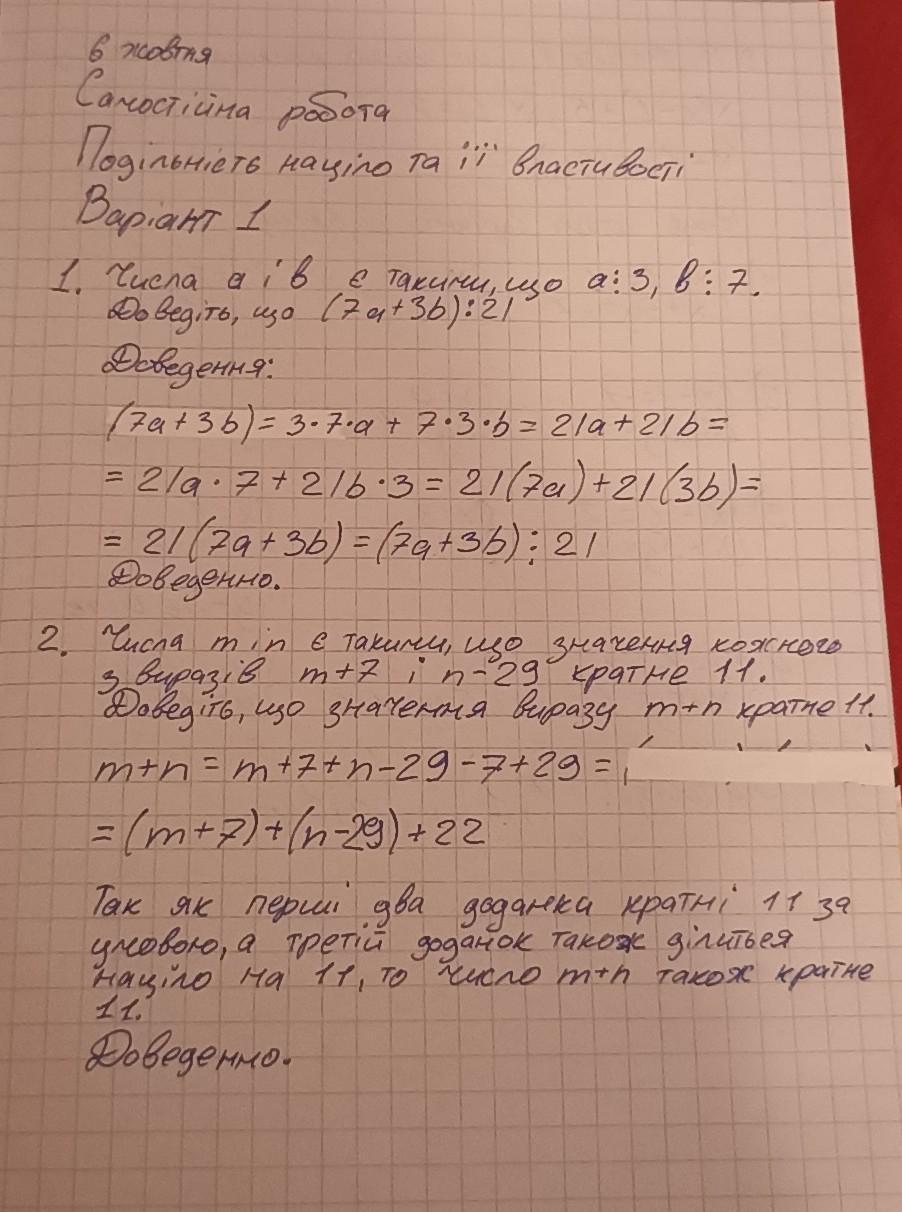 6 жовтня
Самостійна робота
Подільність націло та її властивості
Варіант 1
1. Числа a і b є такими, що a⋮3, b⋮7.
Доведіть, що (7a+3b)⋮21
Доведення:
(7a+3b)=3·7·a+7·3·b=21a+21b=
=21a·7+21b·3=21(7a)+21(3b)=
=21(7a+3b)=(7a+3b)⋮21
Доведенно.
2. Числа m і n є такими, що значення кожного
з виразів m+7 і n-29 кратне 11.
Доведіть, що значення виразу m+n кратне 11.
m+n=m+7+n-29-7+29=
=(m+7)+(n-29)+22
Так як перші два доданки кратні 11 за
умовою, а третій доданок також ділиться
націло на 11, то число m+n також кратне
11.
Доведенно.